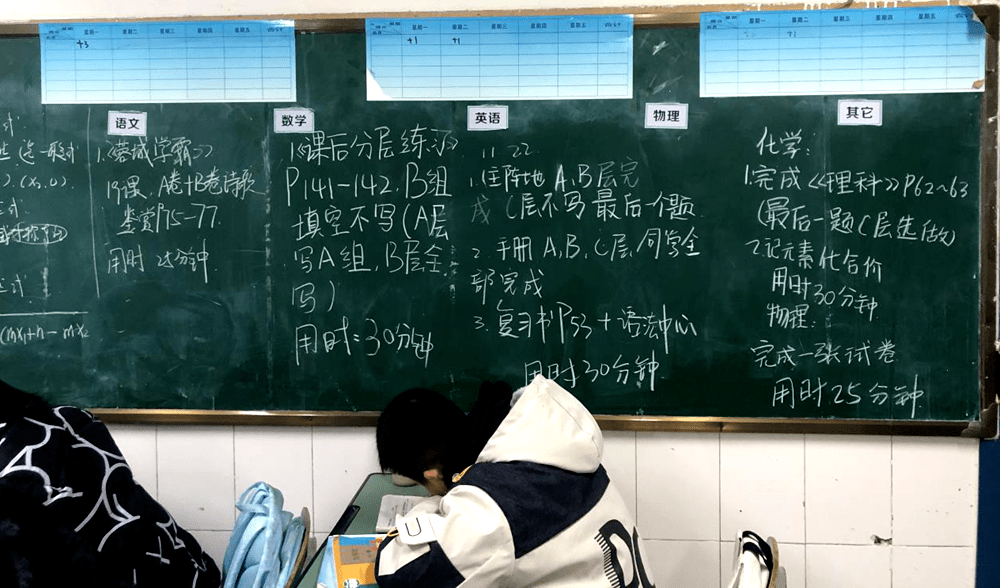 星期一 星期二 星期三 星期四 星期五
星期一 星期二 星期三 星期四 星期五
星期一 星期二 星期三 星期四 星期五
43
41 41
语文
1.《蓉城学霸》
19课、A卷+B卷诗歌
鉴赏P75-77.
用时 25分钟
数学
1.《课后分层练习》
P141-142. B组
填空不写(A层
写A组,B层全
写)
用时:30分钟
英语
11.22.
1.(主阵地 A.B层完
成 C层不写最后一个题
2.手册 A.B.C层.同学全
部完成
3.复习书P53+语法中心
用时30分钟.
物理
其它
化学:
1.完成《理科》P62~63
(最后一题C层选做)
2.记元素化合价
用时30分钟
物理:
完成一张试卷
用时25分钟
(mx₁+n-mx₂
U